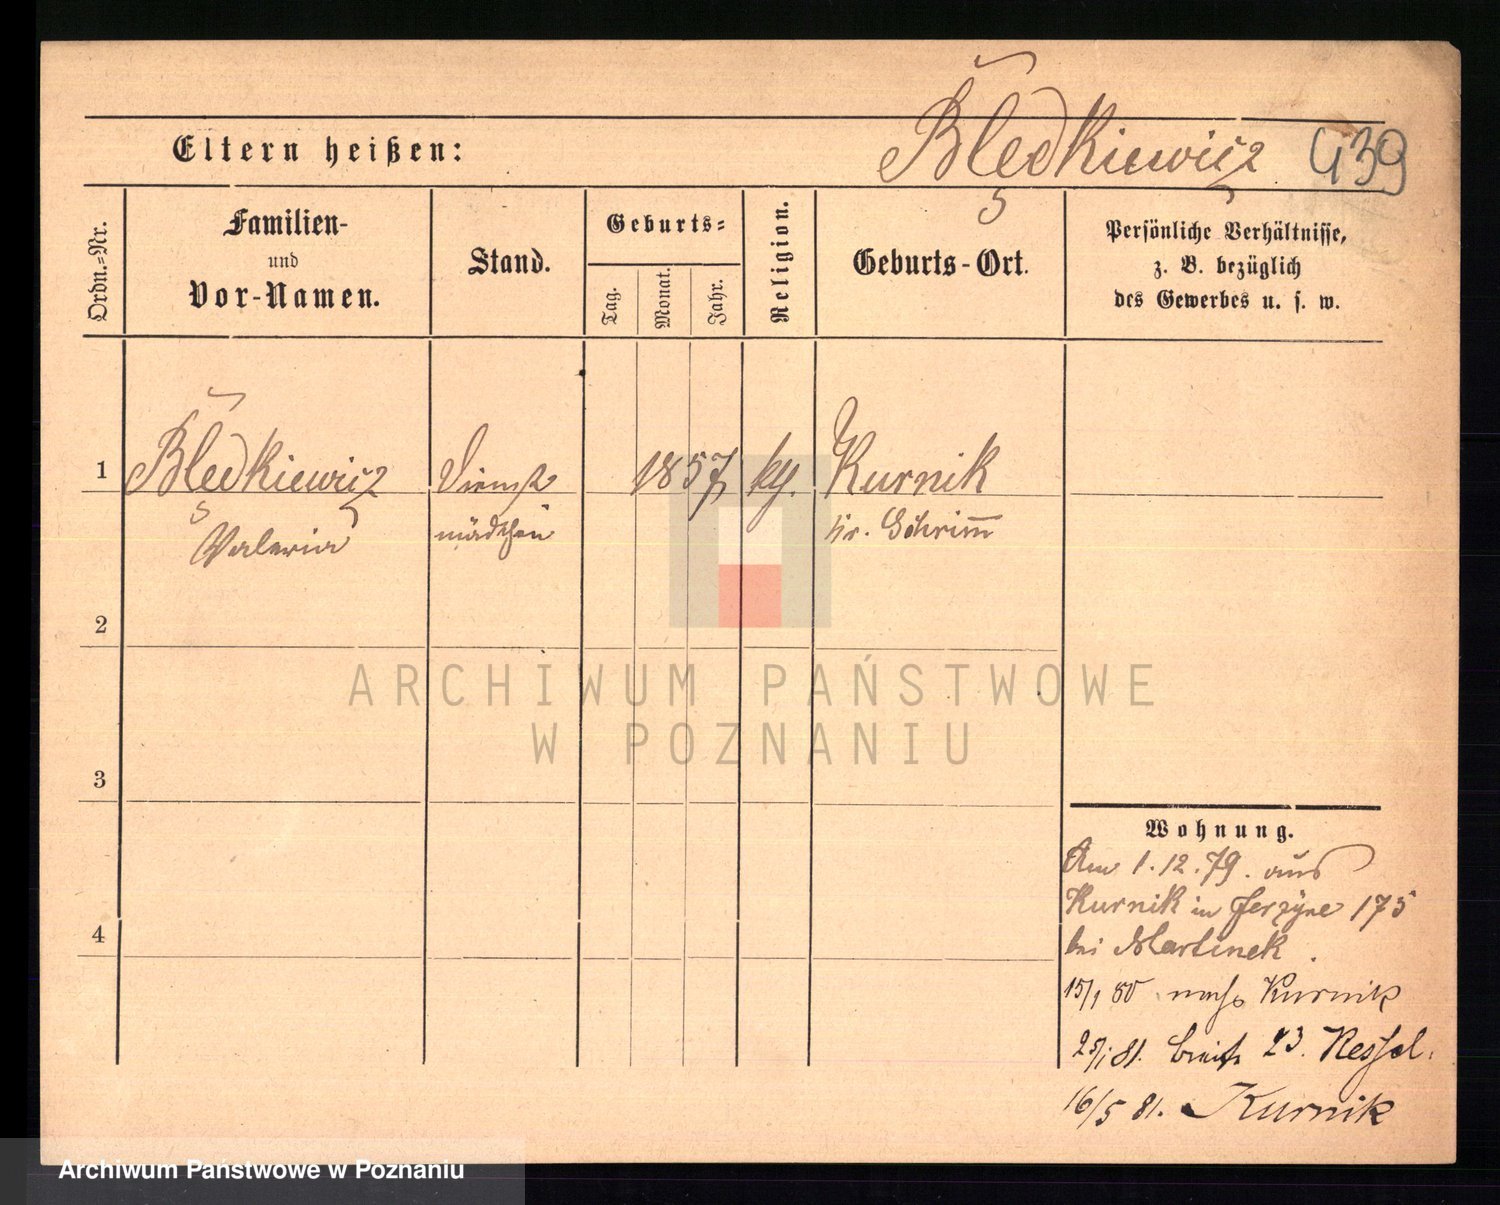 Błedkiewicz 439
Eltern heißen:
Ordn.-Nr.
Familien-
und
Vor-Namen.
Stand.
Geburts-
Tag.
Monat.
Jahr.
Religion.
Geburts-Ort.
Persönliche Verhältnisse,
z. B. bezüglich
des Gewerbes u. s. w.
1 Błedkiewicz Dienst 1857 kg. Kurnik
Valeria mädchen Kr. Schrim̅
2
ARCHIWUM PAŃSTWOWE
W POZNANIU
3
Wohnung.
Am 1.12.79. aus
Kurnik in Jerzyce 175
bei Martinek.
4
15/1 80 nach Kurnik
25/1 81. Breite 23.
16/5 81. Kurnik
Archiwum Państwowe w Poznaniu